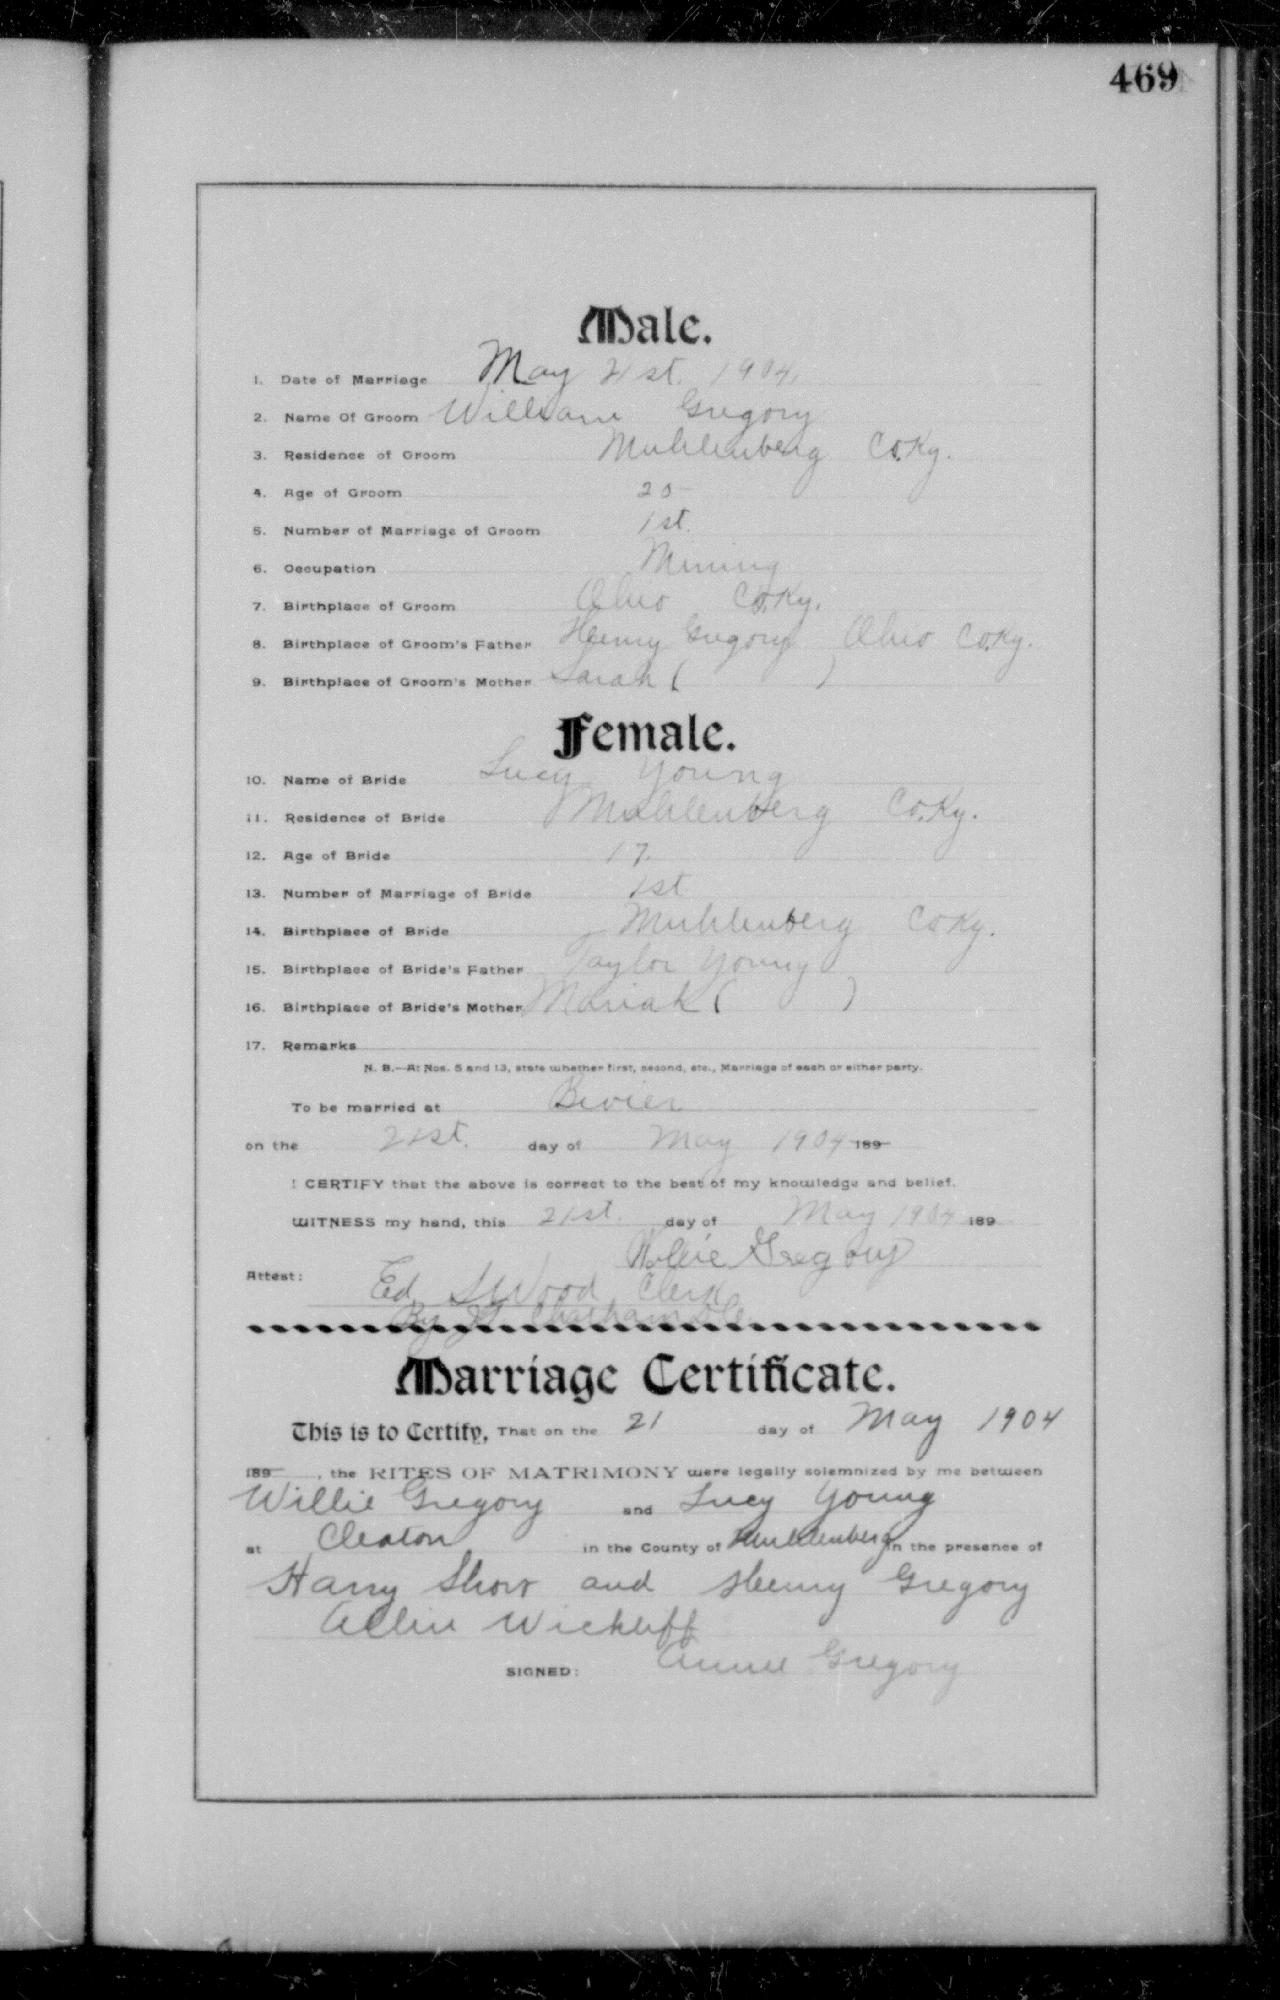 469
Male.
1. Date of Marriage May 21st. 1904.
2. Name Of Groom William Gregory
3. Residence of Groom Muhlenberg Co. Ky.
4. Age of Groom 20
5. Number of Marriage of Groom 1st.
6. Occupation Mining
7. Birthplace of Groom Ohio Co. Ky.
8. Birthplace of Groom's Father Henry Gregory Ohio Co. Ky.
9. Birthplace of Groom's Mother Sarah ( )
Female.
10. Name of Bride Lucy Young
11. Residence of Bride Muhlenberg Co. Ky.
12. Age of Bride 17.
13. Number of Marriage of Bride 1st
14. Birthplace of Bride Muhlenberg Co Ky.
15. Birthplace of Bride's Father Taylor Young
16. Birthplace of Bride's Mother Mariah ( )
17. Remarks
N. B.—At Nos. 5 and 13, state whether first, second, etc., Marriage of each or either party.
To be married at Bevier
on the 21st. day of May 1904 189
I CERTIFY that the above is correct to the best of my knowledge and belief.
WITNESS my hand, this 21st. day of May 1904 189
Gregory
Attest: Ed S Wood Clerk
By Chatham D.C.
Marriage Certificate.
This is to Certify, That on the 21 day of May 1904
189 , the RITES OF MATRIMONY were legally solemnized by me between
Willie Gregory and Lucy Young
at Cleaton in the County of Muhlenberg in the presence of
Harry Shov and Henry Gregory
Wickliff
SIGNED: Gregory